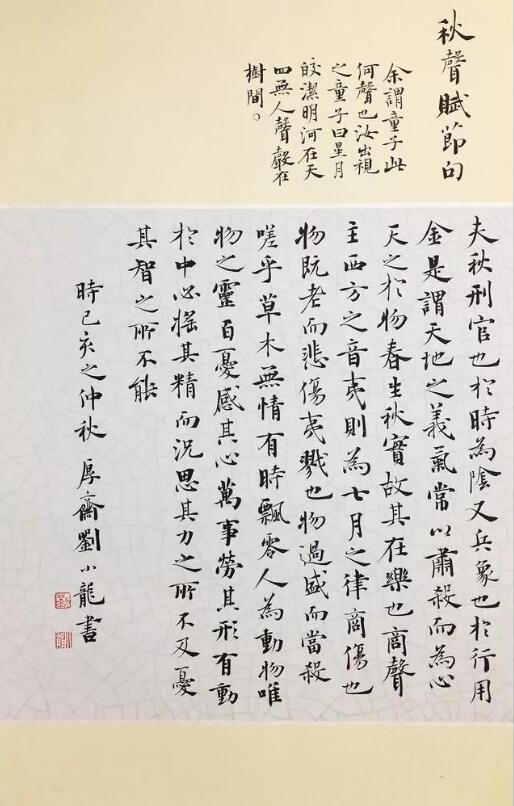 秋聲賦節句
余謂童子此
何聲也汝出視
之童子曰星月
皎潔明河在天
四無人聲聲在
樹間。
夫秋刑官也於時為陰又兵象也於行用
金是謂天地之義氣常以肅殺而為心
天之於物春生秋實故其在樂也商聲
主西方之音夷則為七月之律商傷也
物既老而悲傷夷戮也物過盛而當殺
嗟乎草木無情有時飄零人為動物唯
物之靈百憂感其心萬事勞其形有動
於中必搖其精而況思其力之所不及憂
其智之所不能
時己亥之仲秋 厚齋劉小龍書